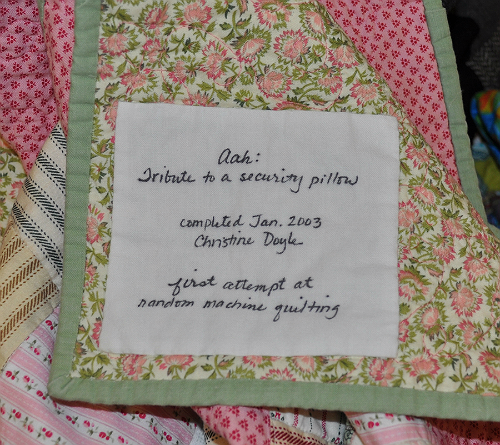 Aah:
Tribute to a security pillow
completed Jan. 2003
Christine Doyle
first attempt at
random machine quilting